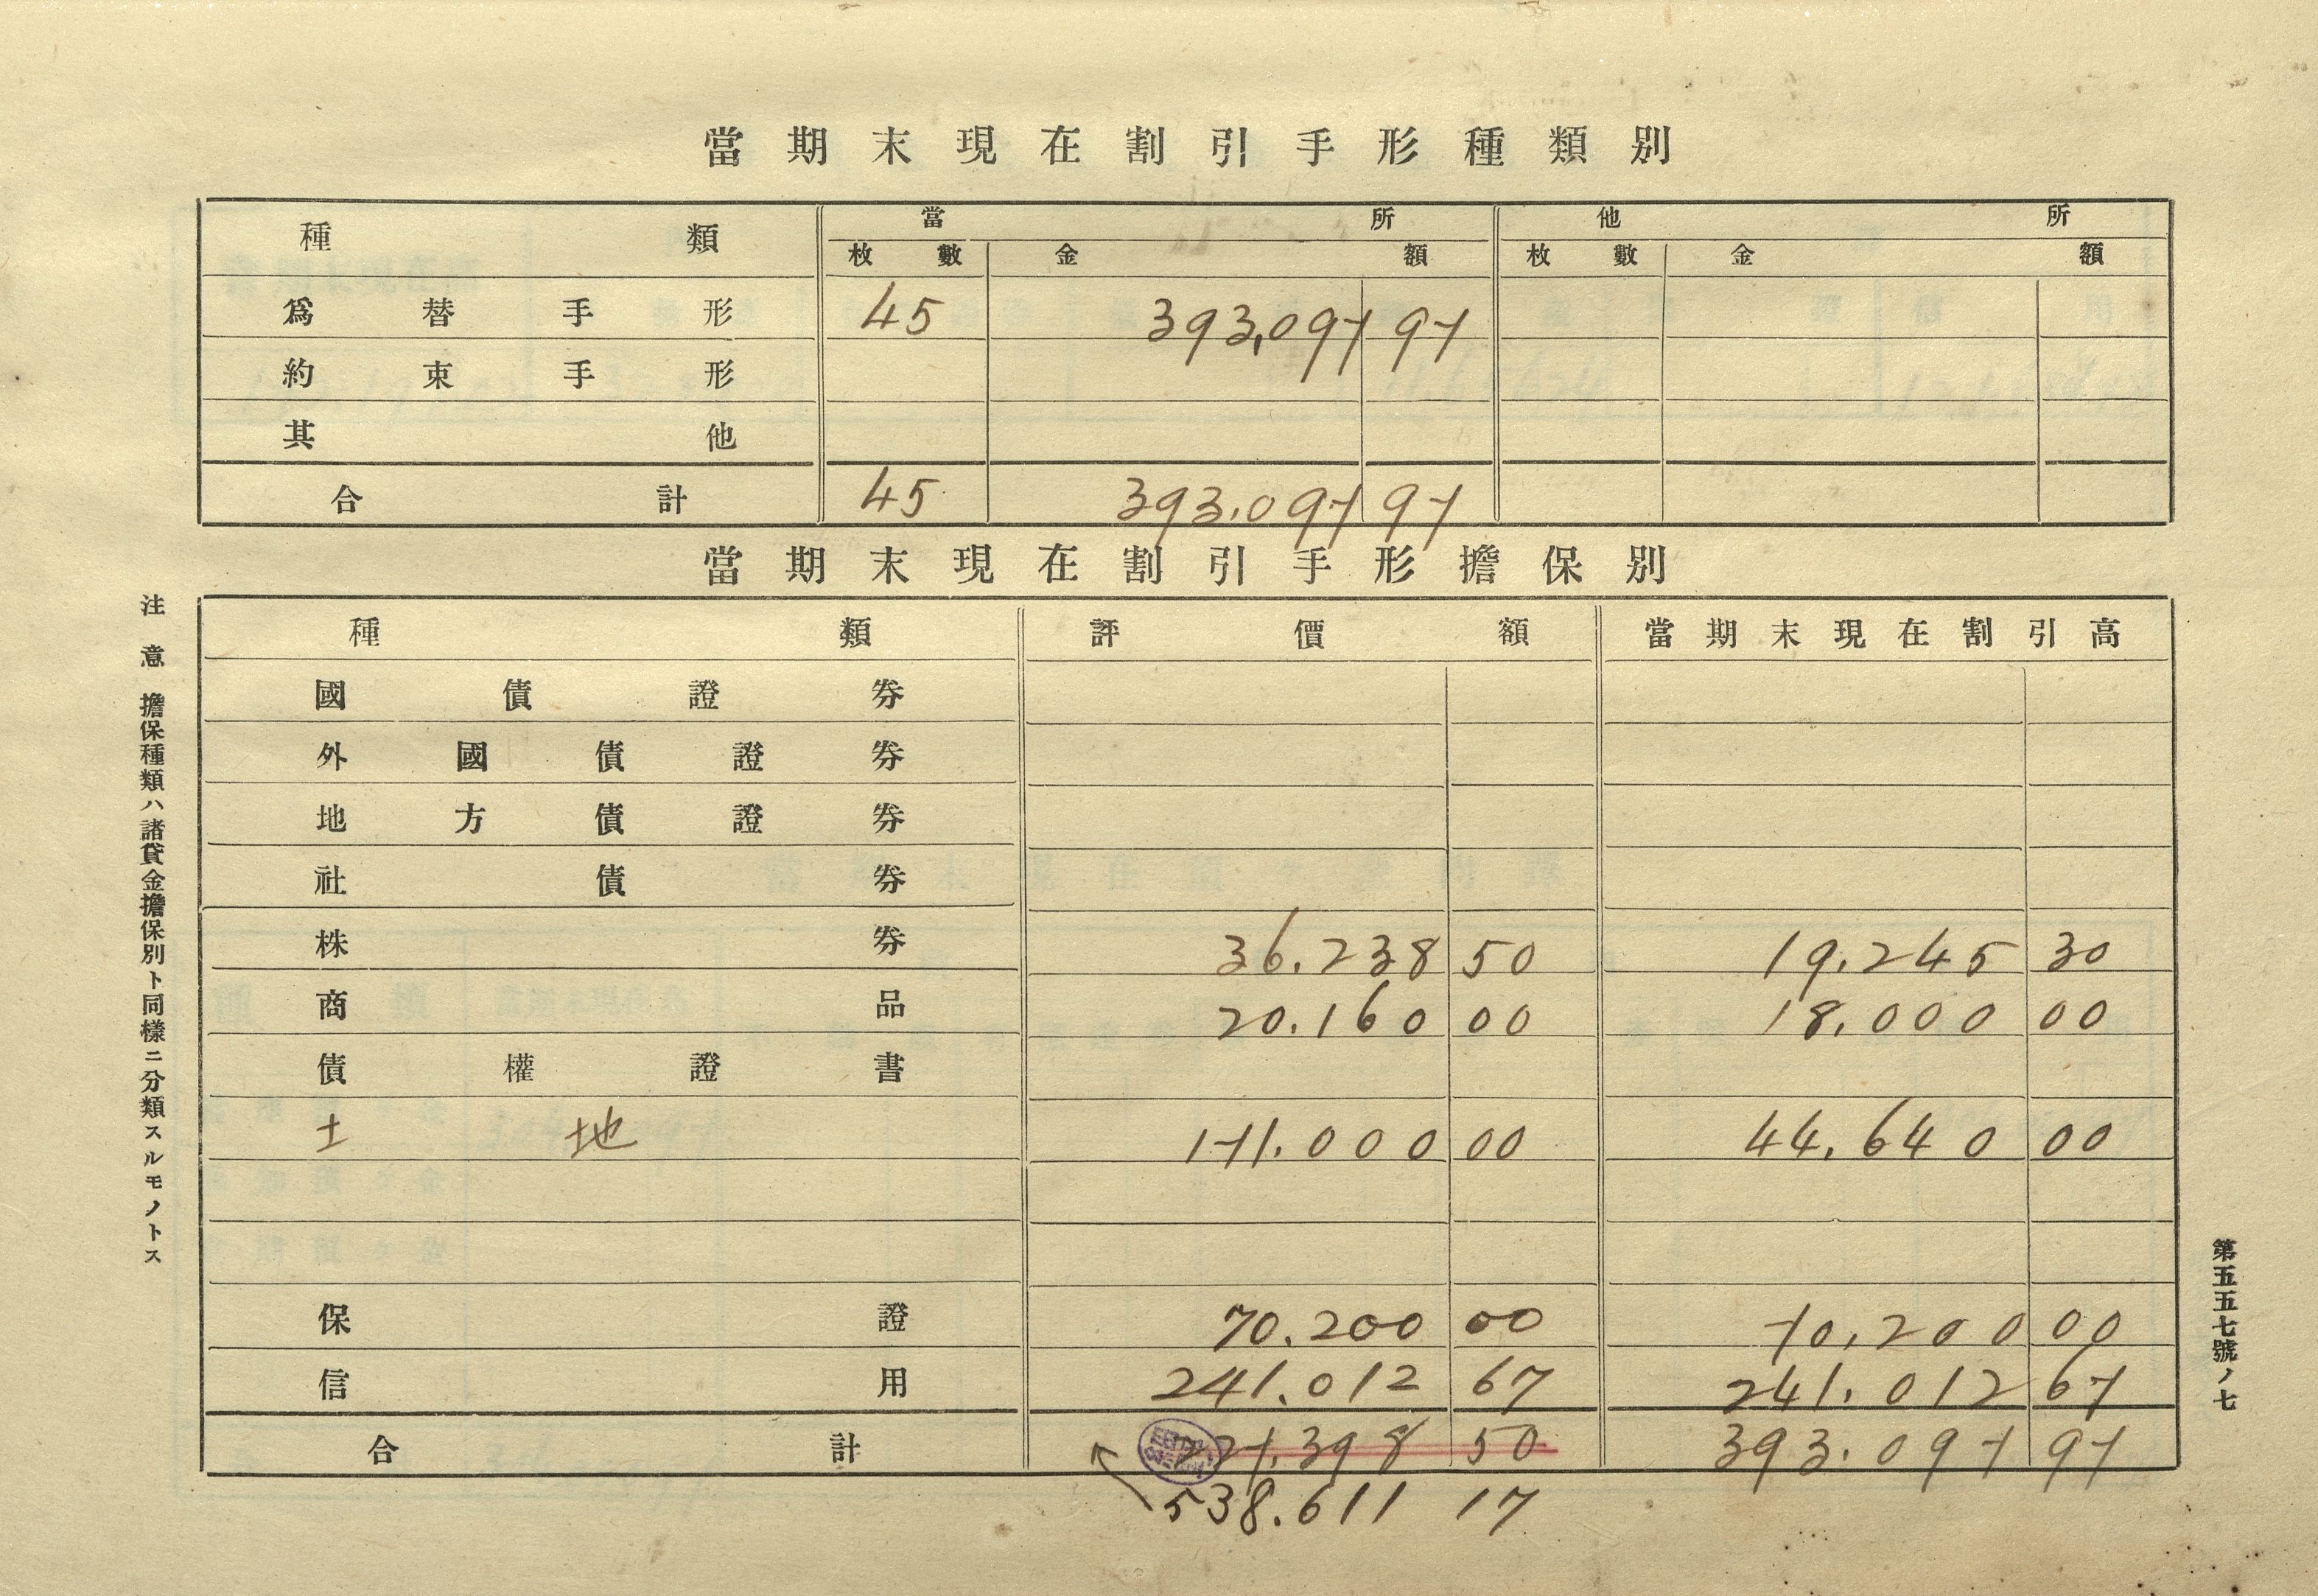 當期末現在割引手形種類別
種類 當所 他所
枚數 金額 枚數 金額
爲替手形 45 393,097 97
約束手形
其他
合計 45 393.097 97
當期末現在割引手形擔保別
種類 評價額 當期末現在割引高
國債證券
外國債證券
地方債證券
社債券
株券 36.238 50 19.245 30
商品 20.160 00 18.000 00
債權證書
土地 171.000 00 44.640 00
保證 70.200 00 70.200 00
信用 241.012 67 241.012 67
合計 227.398 50 393.097 97
538.611 17
注意 擔保種類ハ諸貸金擔保別ト同樣ニ分類スルモノトス
第五五七號ノ七